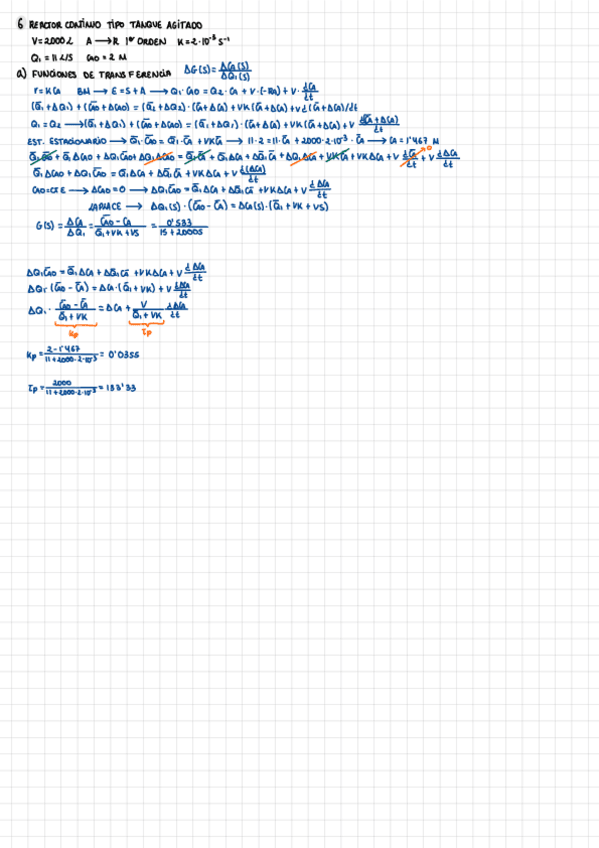 6 REACTOR CONTINUO TIPO TANQUE AGITADO
V=2000L A→R 1er ORDEN K=2·10⁻³ s⁻¹
Q₁=11L/S CA0=2 M
a) FUNCIONES DE TRANSFERENCIA ΔG(S)=ΔCA(S)/ΔQ₁(S)
r=KCA BM→E=S+A→Q₁·CA0=Q₂·CA+V·(-RA)+V·dCA/dt
(Q̄₁+ΔQ₁)+(C̄A0+ΔCA0)=(Q̄₂+ΔQ₂)·(C̄A+ΔCA)+VK(C̄A+ΔCA)+Vd(C̄A+ΔCA)/dt
Q₁=Q₂→(Q̄₁+ΔQ₁)+(C̄A0+ΔCA0)=(Q̄₁+ΔQ₁)·(C̄A+ΔCA)+VK(C̄A+ΔCA)+V d(C̄A+ΔCA)/dt
EST. ESTACIONARIO→Q̄₁·C̄A0=Q̄₁·C̄A+VKC̄A→11·2=11·C̄A+2000·2·10⁻³·C̄A→CA=1'467 M
Q̄₁C̄A0+Q̄₁ΔCA0+ΔQ₁C̄A0+ΔQ₁ΔCA0=Q̄₁C̄A+Q̄₁ΔCA+ΔQ̄₁C̄A+ΔQ₁ΔCA+VKC̄A+VKΔCA+V dC̄A/dt 0+V dΔCA/dt
Q̄₁ΔCA0+ΔQ₁C̄A0=Q̄₁ΔCA+ΔQ̄₁C̄A+VKΔCA+V d(ΔCA)/dt
CA0=CTE→ΔCA0=0→ΔQ₁C̄A0=Q̄₁ΔCA+ΔQ̄₁C̄A+VKΔCA+V dΔCA/dt
LAPLACE→ΔQ₁(S)·(C̄A0-C̄A)=ΔCA(S)·(Q̄₁+VK+VS)
G(S)=ΔCA/ΔQ₁=(C̄A0-C̄A)/(Q̄₁+VK+VS)=0'533/(15+2000S)
ΔQ₁C̄A0=Q̄₁ΔCA+ΔQ̄₁C̄A+VKΔCA+V dΔCA/dt
ΔQ₁(C̄A0-C̄A)=ΔCA·(Q̄₁+VK)+V dΔCA/dt
ΔQ₁·(C̄A0-C̄A)/(Q̄₁+VK)=ΔCA+V/(Q̄₁+VK) dΔCA/dt
Kp τp
Kp=(2-1'467)/(11+2000·2·10⁻³)=0'0355
τp=2000/(11+2000·2·10⁻³)=133'33